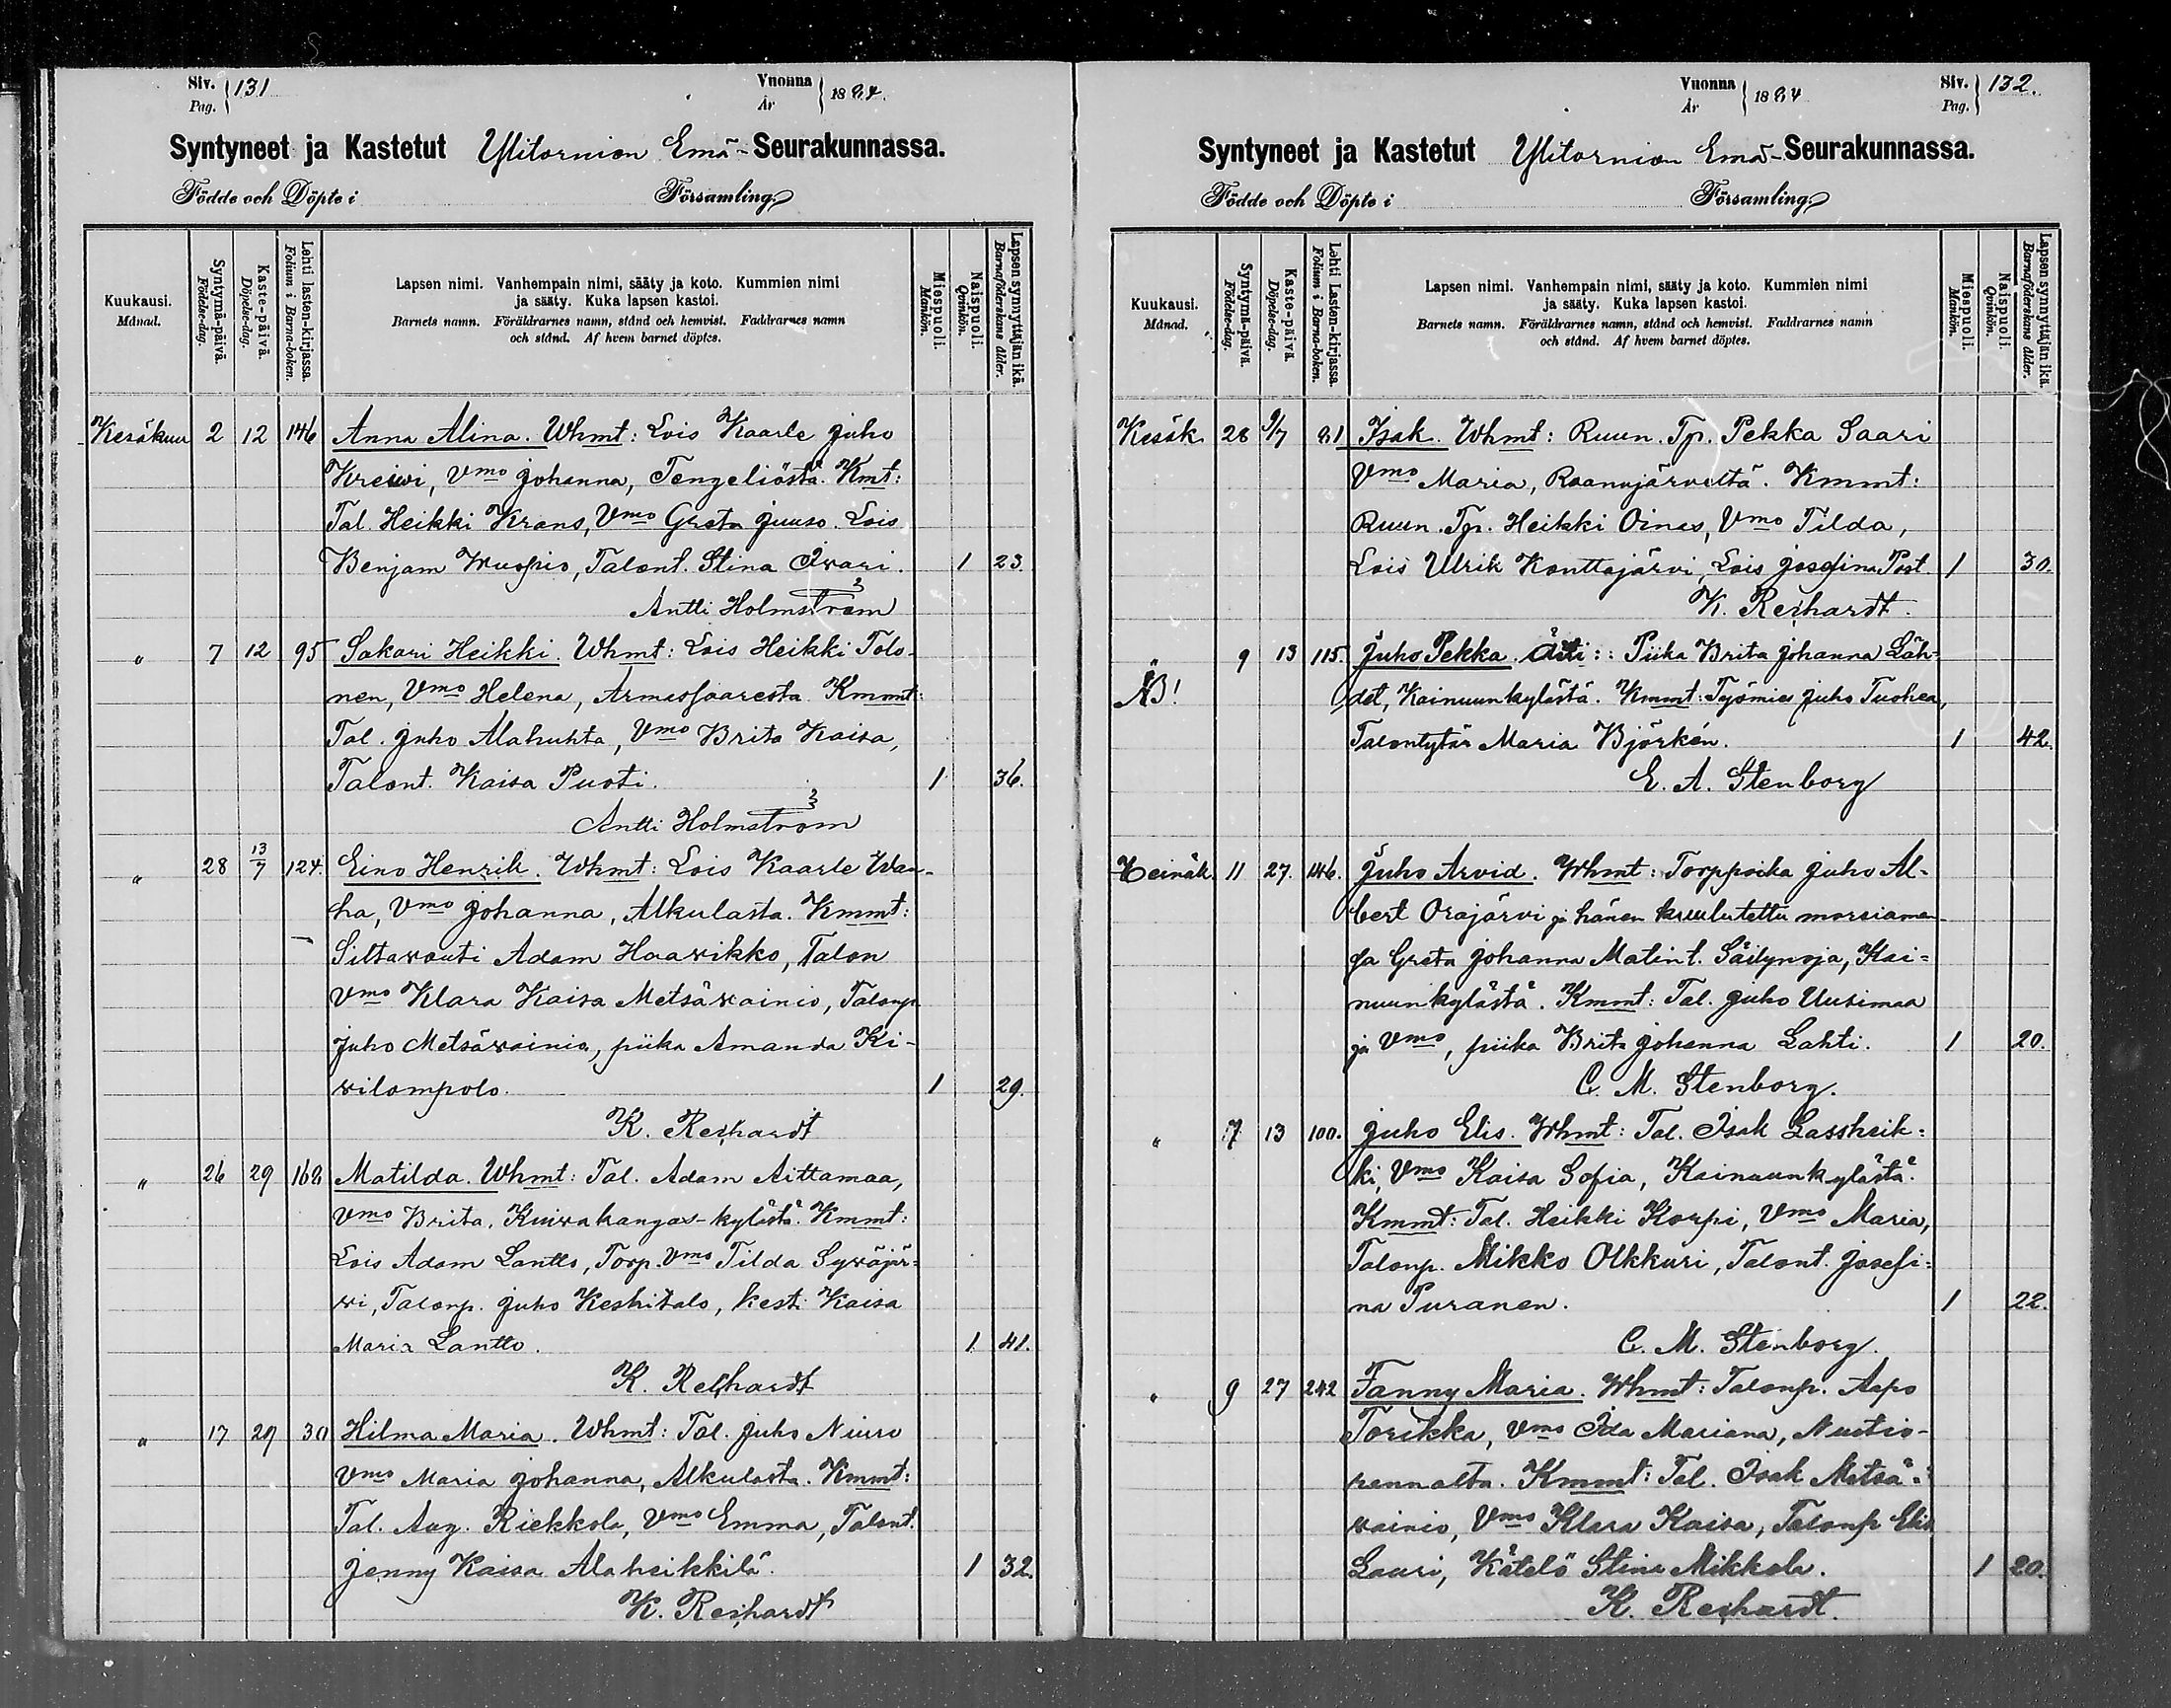 Siv. Pag. 131
Vuonna År 1884.
Syntyneet ja Kastetut Ylitornion Emä-Seurakunnassa.
Födde och Döpte i Församling
Kuukausi. Månad.
Syntymä-päivä. Födelse-dag.
Kaste-päivä. Döpelse-dag.
Lehti lasten-kirjassa. Folium i Barna-boken.
Lapsen nimi. Vanhempain nimi, sääty ja koto. Kummien nimi
ja sääty. Kuka lapsen kastoi.
Barnets namn. Föräldrarnes namn, stånd och hemvist. Faddrarnes namn
och stånd. Af hvem barnet döptes.
Miespuoli. Mankön.
Naispuoli. Qvinkön.
Lapsen synnyttäjän ikä. Barnaföderskans ålder.
Kesäkuu 2 12 146 Anna Alina. Whmt: Lois Kaarle Juho
Kreiwi, Vmo Johanna, Tengeliöstä. Kmt:
Tal. Heikki Krans, Vmo Greta Juuso. Lois
Benjam Wuopio, Talont. Stina Iwari. 1 23.
Antti Holmström
" 7 12 95 Sakari Heikki. Whmt: Lois Heikki Tolo-
nen, Vmo Helena, Armassaaresta. Kmmt:
Tal. Juho Alahuhta, Vmo Brita Kaisa,
Talont. Kaisa Puoti. 1 36.
Antti Holmström
" 28 13/7 124. Eino Henrik. Whmt: Lois Kaarle Wan-
ha, Vmo Johanna, Alkulasta. Kmmt:
Siltawouti Adam Haawikko, Talon
Vmo Klara Kaisa Metsäwainio, Talonp.
Juho Metsäwainio, piika Amanda Ki-
wilompolo. 1 29.
K. Reihardt
" 26 29 168 Matilda. Whmt: Tal. Adam Aittamaa,
Vmo Brita, Kuiwakangas-kylästä. Kmmt:
Lois Adam Lantto, Torp. Vmo Tilda Sywäjär-
wi, Talonp. Juho Keskitalo, kesti Kaisa
Maria Lantto. 1 41.
K. Reihardt
" 17 29 30 Hilma Maria. Whmt: Tal. Juho Niuro
Vmo Maria Johanna, Alkulasta. Kmmt:
Tal. Aug. Riekkola, Vmo Emma, Talont.
Jenny Kaisa Alaheikkilä. 1 32.
K. Reihardt
Vuonna År 1884
Siv. Pag. 132.
Syntyneet ja Kastetut Ylitornion Emä-Seurakunnassa.
Födde och Döpte i Församling
Kuukausi. Månad.
Syntymä-päivä. Födelse-dag.
Kaste-päivä. Döpelse-dag.
Lehti Lasten-kirjassa. Folium i Barna-boken.
Lapsen nimi. Vanhempain nimi, sääty ja koto. Kummien nimi
ja sääty. Kuka lapsen kastoi.
Barnets namn. Föräldrarnes namn, stånd och hemvist. Faddrarnes namn
och stånd. Af hvem barnet döptes.
Miespuoli. Mankön.
Naispuoli. Qvinkön.
Lapsen synnyttäjän ikä. Barnaföderskans ålder.
Kesäk. 28 9/7 81 Isak. Whmt: Ruun. Tp. Pekka Saari
Vmo Maria, Raanujärveltä. Kmmt:
Ruun. Tp. Heikki Oinas, Vmo Tilda,
Lois Ulrik Konttajärvi, Lois Josefina Post. 1 30.
K. Reihardt.
" 9 13 115. Juho Pekka. Äiti: Piika Brita Johanna Läh-
NB! det, Kainuunkylästä. Kmmt: Työmies Juho Tuohea,
Talontytär Maria Björkén. 1 42.
E. A. Stenborg
Heinäk. 11 27. 146. Juho Arvid. Whmt: Torppoika Juho Al-
bert Orajärvi ja hänen kuulutettu morsiamen-
sa Greta Johanna Matint. Säilynoja, Kai-
nuunkylästä. Kmmt: Tal. Juho Uusimaa
ja Vmo, piika Brita Johanna Lahti. 1 20.
C. M. Stenborg.
" 7 13 100. Juho Elis. Whmt: Tal. Isak Lassheik-
ki, Vmo Kaisa Sofia, Kainuunkylästä.
Kmmt: Tal. Heikki Korpi, Vmo Maria,
Talonp. Mikko Olkkuri, Talont. Josefi-
na Puranen. 1 22.
C. M. Stenborg.
" 9 27 242 Fanny Maria. Whmt: Talonp. Aapo
Torikka, Vmo Ida Mariana, Nuotio-
rennalta. Kmmt: Tal. Isak Metsä-
wainio, Vmo Klara Kaisa, Talonp Elis
Lauri, Kätelö Stina Mikkola. 1 20.
K. Reihardt.